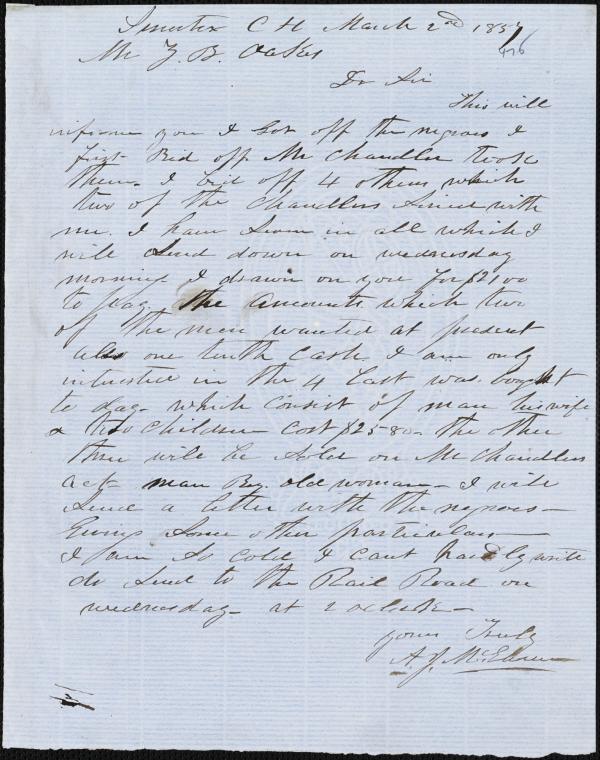 Sumter C H March 2nd 1857
476
Mr Z. B. Oakes
Dr Sir
This will
inform you I got off the negroes I
first Bid off Mr Chandler those
them. I bid off 4 others which
two of the Chandlers Joined with
me. I have Seven in all which I
will Send down on wednesday
morning I drawn on you for $2100
to pay the amounts which two
of the men wanted at present
also one tenth Cash I am only
interested in the 4 Last was bought
to day- which Consist of man his wife
& two Children Cost $2580- the other
three will be Sold on Mr Chandlers
act- man Boy. old woman- I will
Send a letter with the negroes-
Giving Some other particulars-
I am So cold I cant hardly write
do Send to the Rail Road on
wednesday- at 2 oclock-
yours Truly
A. J. McElveen